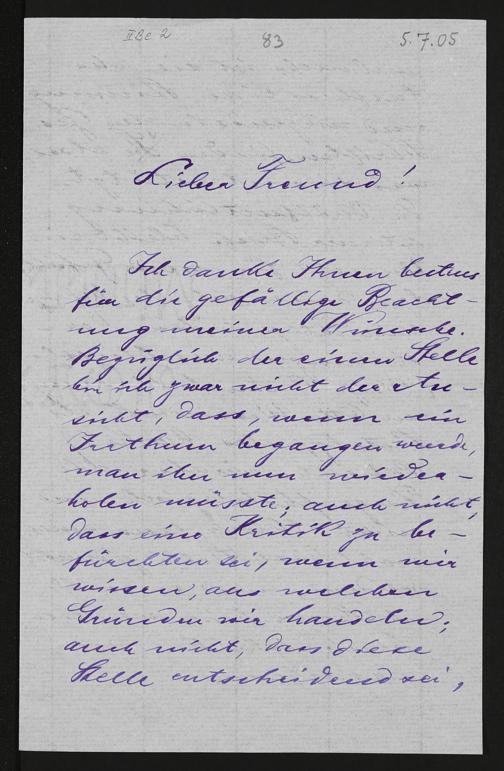 II Be 2 83 5.7.05
Lieber Freund!
Ich danke Ihnen bestens
für die gefällige Beacht-
ung meiner Wünsche.
Bezüglich der einen Stelle
bin ich zwar nicht der An-
sicht, dass, wenn ein
Irrthum begangen wurde,
man ihn nun wieder-
holen müsste; auch nicht,
dass eine Kritik zu be-
fürchten sei, wenn wir
wissen, aus welchen
Gründen wir handeln;
auch nicht, dass diese
Stelle entscheidend sei,